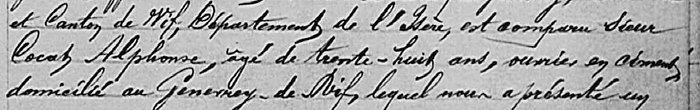 et Canton de Vif, Département de l'Isère, est comparu Sieur
Cocat Alphonse, âgé de trente-huit ans, ouvrier en ciment
domicilié au Genevrey-de Vif, lequel nous a présenté un